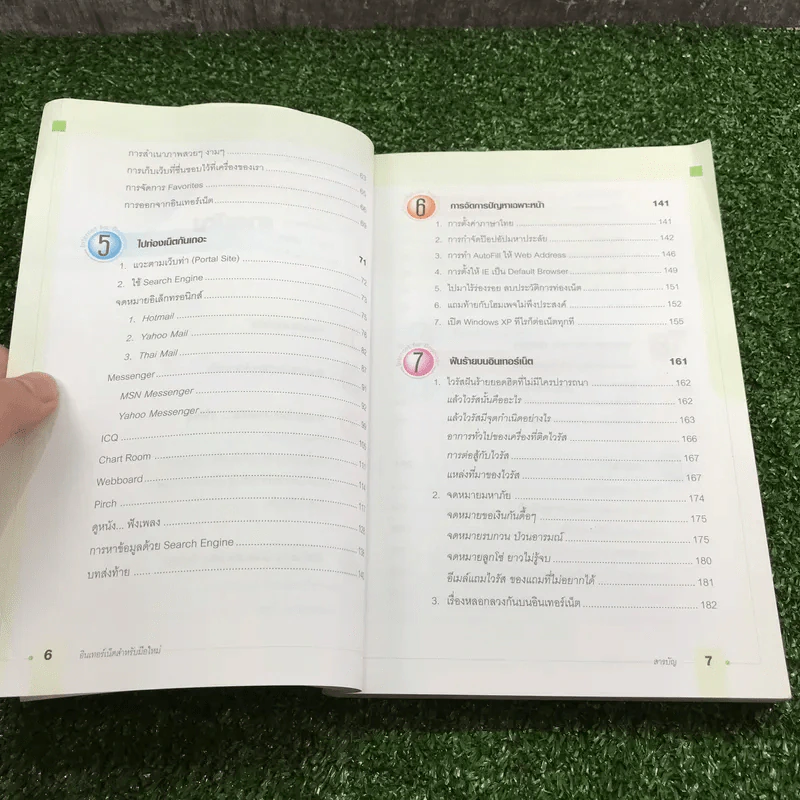 การสำเนาภาพสวยๆ งามๆ
การเก็บเว็บที่ชื่นชอบไว้ที่เครื่องของเรา 63
การจัดการ Favorites 65
การออกจากอินเทอร์เน็ต 69
5 ไปท่องเน็ตกันเถอะ 71
1. แวะตามเว็บท่า (Portal Site) 72
2. ใช้ Search Engine 73
จดหมายอิเล็กทรอนิกส์ 75
1. Hotmail 76
2. Yahoo Mail 82
3. Thai Mail 87
Messenger 91
MSN Messenger 92
Yahoo Messenger
ICQ
Chart Room
Webboard
Pirch
ดูหนัง... ฟังเพลง
การหาข้อมูลด้วย Search Engine
บทส่งท้าย
6 อินเทอร์เน็ตสำหรับมือใหม่
6 การจัดการปัญหาเฉพาะหน้า 141
1. การตั้งค่าภาษาไทย 141
2. การกำจัดป๊อปอัปมหาประลัย 142
3. การทำ AutoFill ให้ Web Address 146
4. การตั้งให้ IE เป็น Default Browser 149
5. ไปมาไร้ร่องรอย ลบประวัติการท่องเน็ต 151
6. แถมท้ายกับโฮมเพจไม่พึงประสงค์ 152
7. เปิด Windows XP ทีไรก็ต่อเน็ตทุกที 155
7 ฝันร้ายบนอินเทอร์เน็ต 161
1. ไวรัสฝันร้ายยอดฮิตที่ไม่มีใครปรารถนา 162
แล้วไวรัสนั้นคืออะไร 162
แล้วไวรัสมีจุดกำเนิดอย่างไร 163
อาการทั่วไปของเครื่องที่ติดไวรัส 166
การต่อสู้กับไวรัส 167
แหล่งที่มาของไวรัส 167
2. จดหมายมหาภัย 174
จดหมายขอเงินกันดื้อๆ 175
จดหมายรบกวน ป่วนอารมณ์ 175
จดหมายลูกโซ่ ยาวไม่รู้จบ 180
อีเมล์แถมไวรัส ของแถมที่ไม่อยากได้ 181
3. เรื่องหลอกลวงกันบนอินเทอร์เน็ต 182
สารบัญ 7